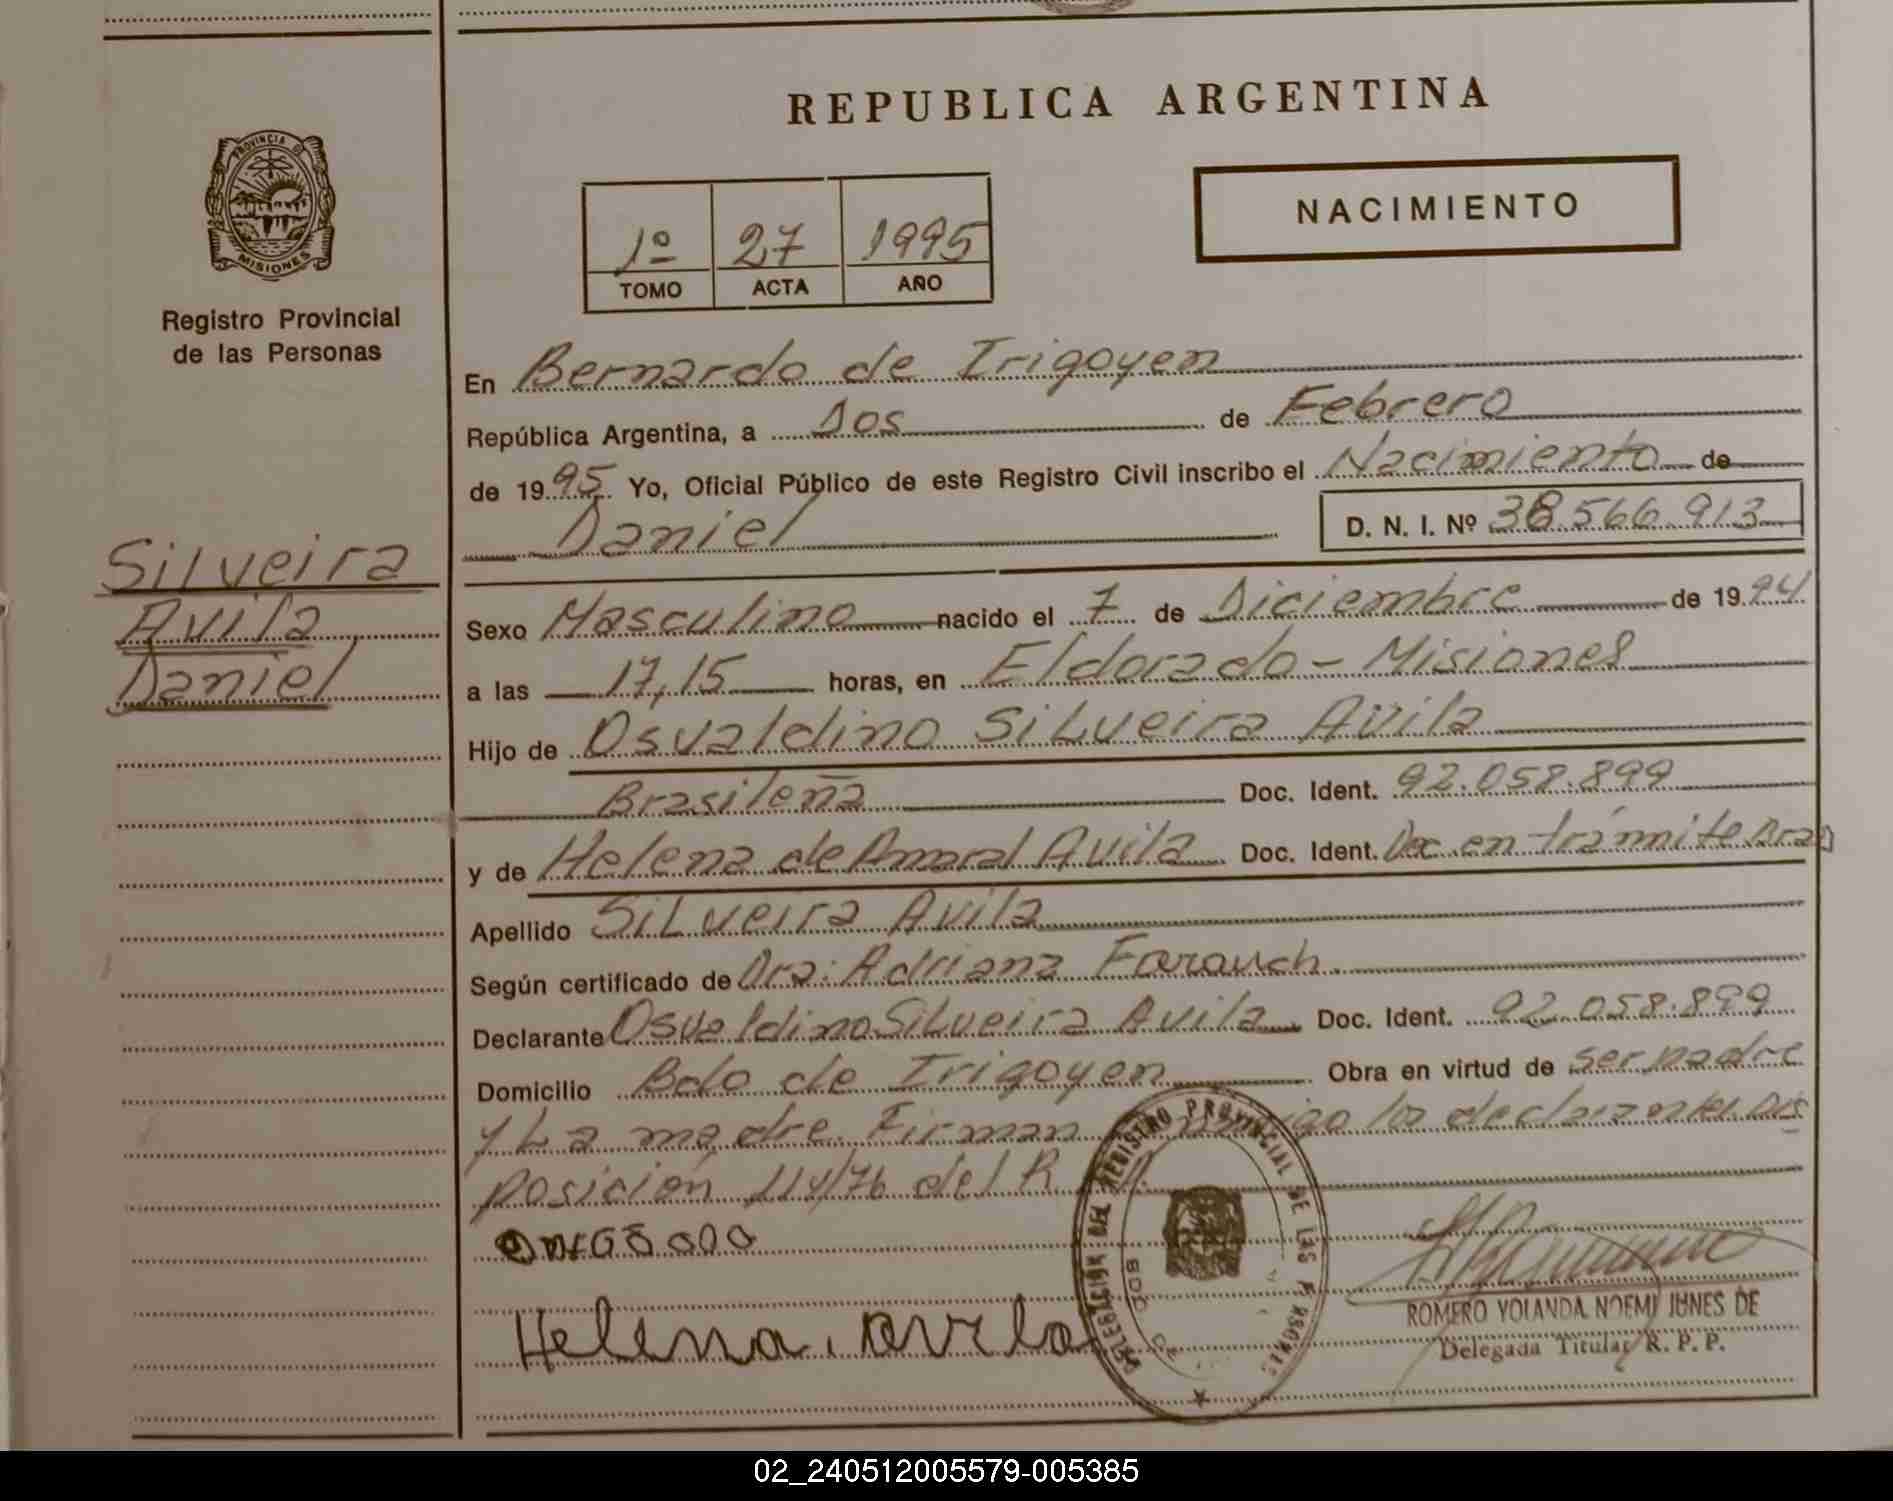 REPUBLICA ARGENTINA
PROVINCIA DE
MISIONES
Registro Provincial
de las Personas
1º 27 1995
TOMO ACTA AÑO
NACIMIENTO
En Bernardo de Irigoyen
República Argentina, a Dos de Febrero
de 1995 Yo, Oficial Público de este Registro Civil inscribo el Nacimiento de
Daniel D. N. I. Nº 38.566.913
Silveira
Avila
Daniel
Sexo Masculino nacido el 7 de Diciembre de 1994
a las 17,15 horas, en Eldorado - Misiones
Hijo de Osvaldino Silveira Avila
Brasileña Doc. Ident. 92.058.899
y de Helena de Amaral Avila Doc. Ident. Doc en trámite Bras
Apellido Silveira Avila
Según certificado de Dra: Adriana Farauch.
Declarante Osvaldino Silveira Avila Doc. Ident. 92.058.899
Domicilio Bdo de Irigoyen Obra en virtud de ser padre
y La madre. Firman los declarantes Dis
posición 114/76 del R
Helena. avila
DELEGACION DEL REGISTRO PROVINCIAL DE LAS PERSONAS
BDO DE
ROMERO YOLANDA NOEMI JUNES DE
Delegada Titular R. P. P.
02_240512005579-005385